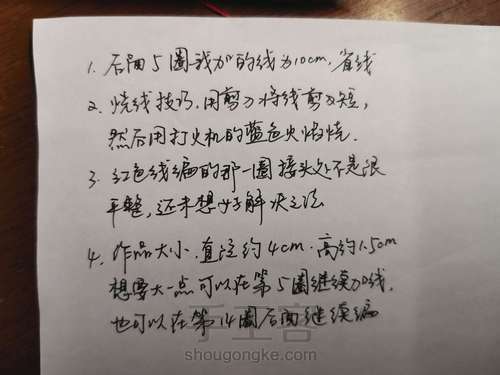 1. 后面5圈我加的线为10cm，省线
2. 烧线技巧，用剪刀将线剪短，
然后用打火机的蓝色火焰烧．
3. 红色线编的那一圈接头处不是很
平整，还未想好解决之法
4. 作品大小．直径约4cm．高约1.5cm
想要大一点可以在第5圈继续加线．
也可以在第14圈后面继续编
手工客
shougongke.com